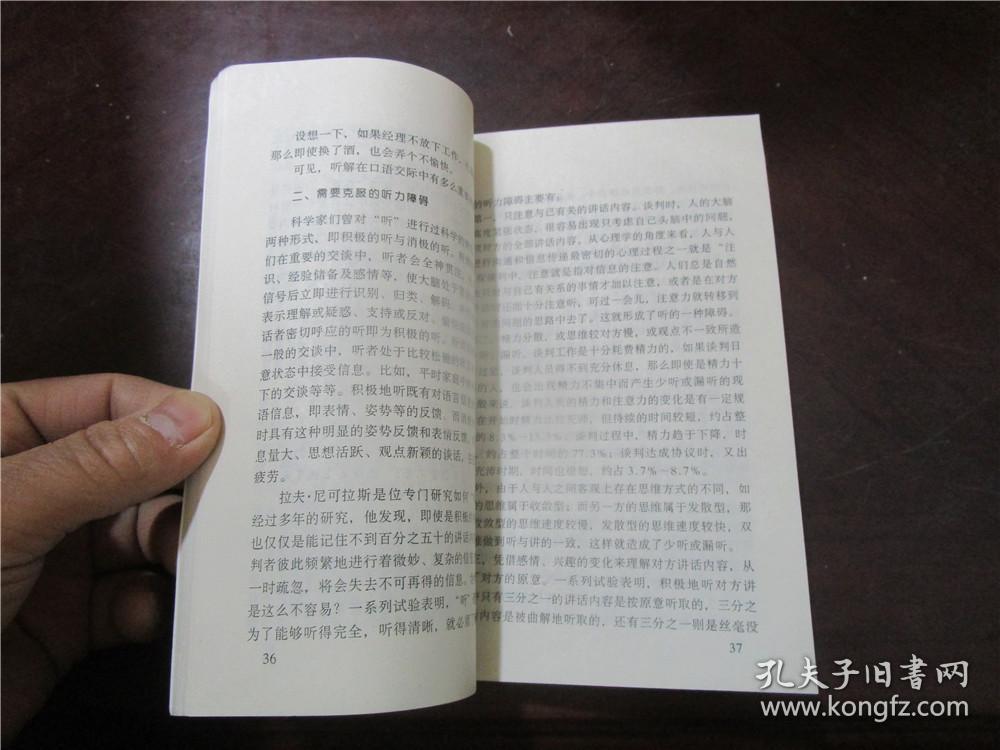 设想一下，如果经理不放下工作，
那么即使换了酒，也会弄个不愉快。
可见，听解在口语交际中有多么重
二、需要克服的听力障碍
科学家们曾对“听”进行过科学的
两种形式，即积极的听与消极的听。
们在重要的交谈中，听者会全神贯注，
识、经验储备及感情等，使大脑处于
信号后立即进行识别、归类、解码，
表示理解或疑惑、支持或反对、愉快
话者密切呼应的听即为积极的听。
一般的交谈中，听者处于比较松弛的
意状态中接受信息。比如，平时家庭中
下的交谈等等。积极地听既有对语言信
语信息，即表情、姿势等的反馈，而消
时具有这种明显的姿势反馈和表情反馈，
息量大、思想活跃、观点新颖的谈话，
疲劳。
拉夫·尼可拉斯是位专门研究如何“
经过多年的研究，他发现，即使是积极
也仅仅是能记住不到百分之五十的讲话
判者彼此频繁地进行着微妙、复杂的信
一时疏忽，将会失去不可再得的信息。
是这么不容易？一系列试验表明，“听”
为了能够听得完全，听得清晰，就必须
36
的听力障碍主要有：
第一，只注意与己有关的讲话内容。谈判时，人的大脑
高度紧张状态，很容易出现只考虑自己头脑中的问题，
对方的全部讲话内容。从心理学的角度来看，人与人
沟通和信息传递最密切的心理过程之一就是“注
谈判中，注意就是指对信息的注意。人们总是自然
与自己有关系的事情才加以注意，或者是在对方
还能十分注意听，可过一会儿，注意力就转移到
问题的思路中去了。这就形成了听的一种障碍。
精力分散，或思维较对方慢，或观点不一致所造
漏听。谈判工作是十分耗费精力的，如果谈判日
谈判人员得不到充分休息，那么即使是精力十
的人，也会出现精力不集中而产生少听或漏听的现
般来说，谈判人员的精力和注意力的变化是有一定规
在开始时精力比较充沛，但持续的时间较短，约占整
的8.3%～13.3%；谈判过程中，精力趋于下降，时
约占整个时间的77.3%；谈判达成协议时，又出
充沛时期，时间也很短，约占3.7%～8.7%。
外，由于人与人之间客观上存在思维方式的不同，如
的思维属于收敛型；而另一方的思维属于发散型，那
收敛型的思维速度较慢，发散型的思维速度较快，双
难做到听与讲的一致，这样就造成了少听或漏听。
三，凭借感情、兴趣的变化来理解对方讲话内容，
”对方的原意。一系列试验表明，积极地听对方讲
只有三分之一的讲话内容是按原意听取的，三分之
内容是被曲解地听取的，还有三分之一则是丝毫没
37
孔夫子旧書网
www.kongfz.com